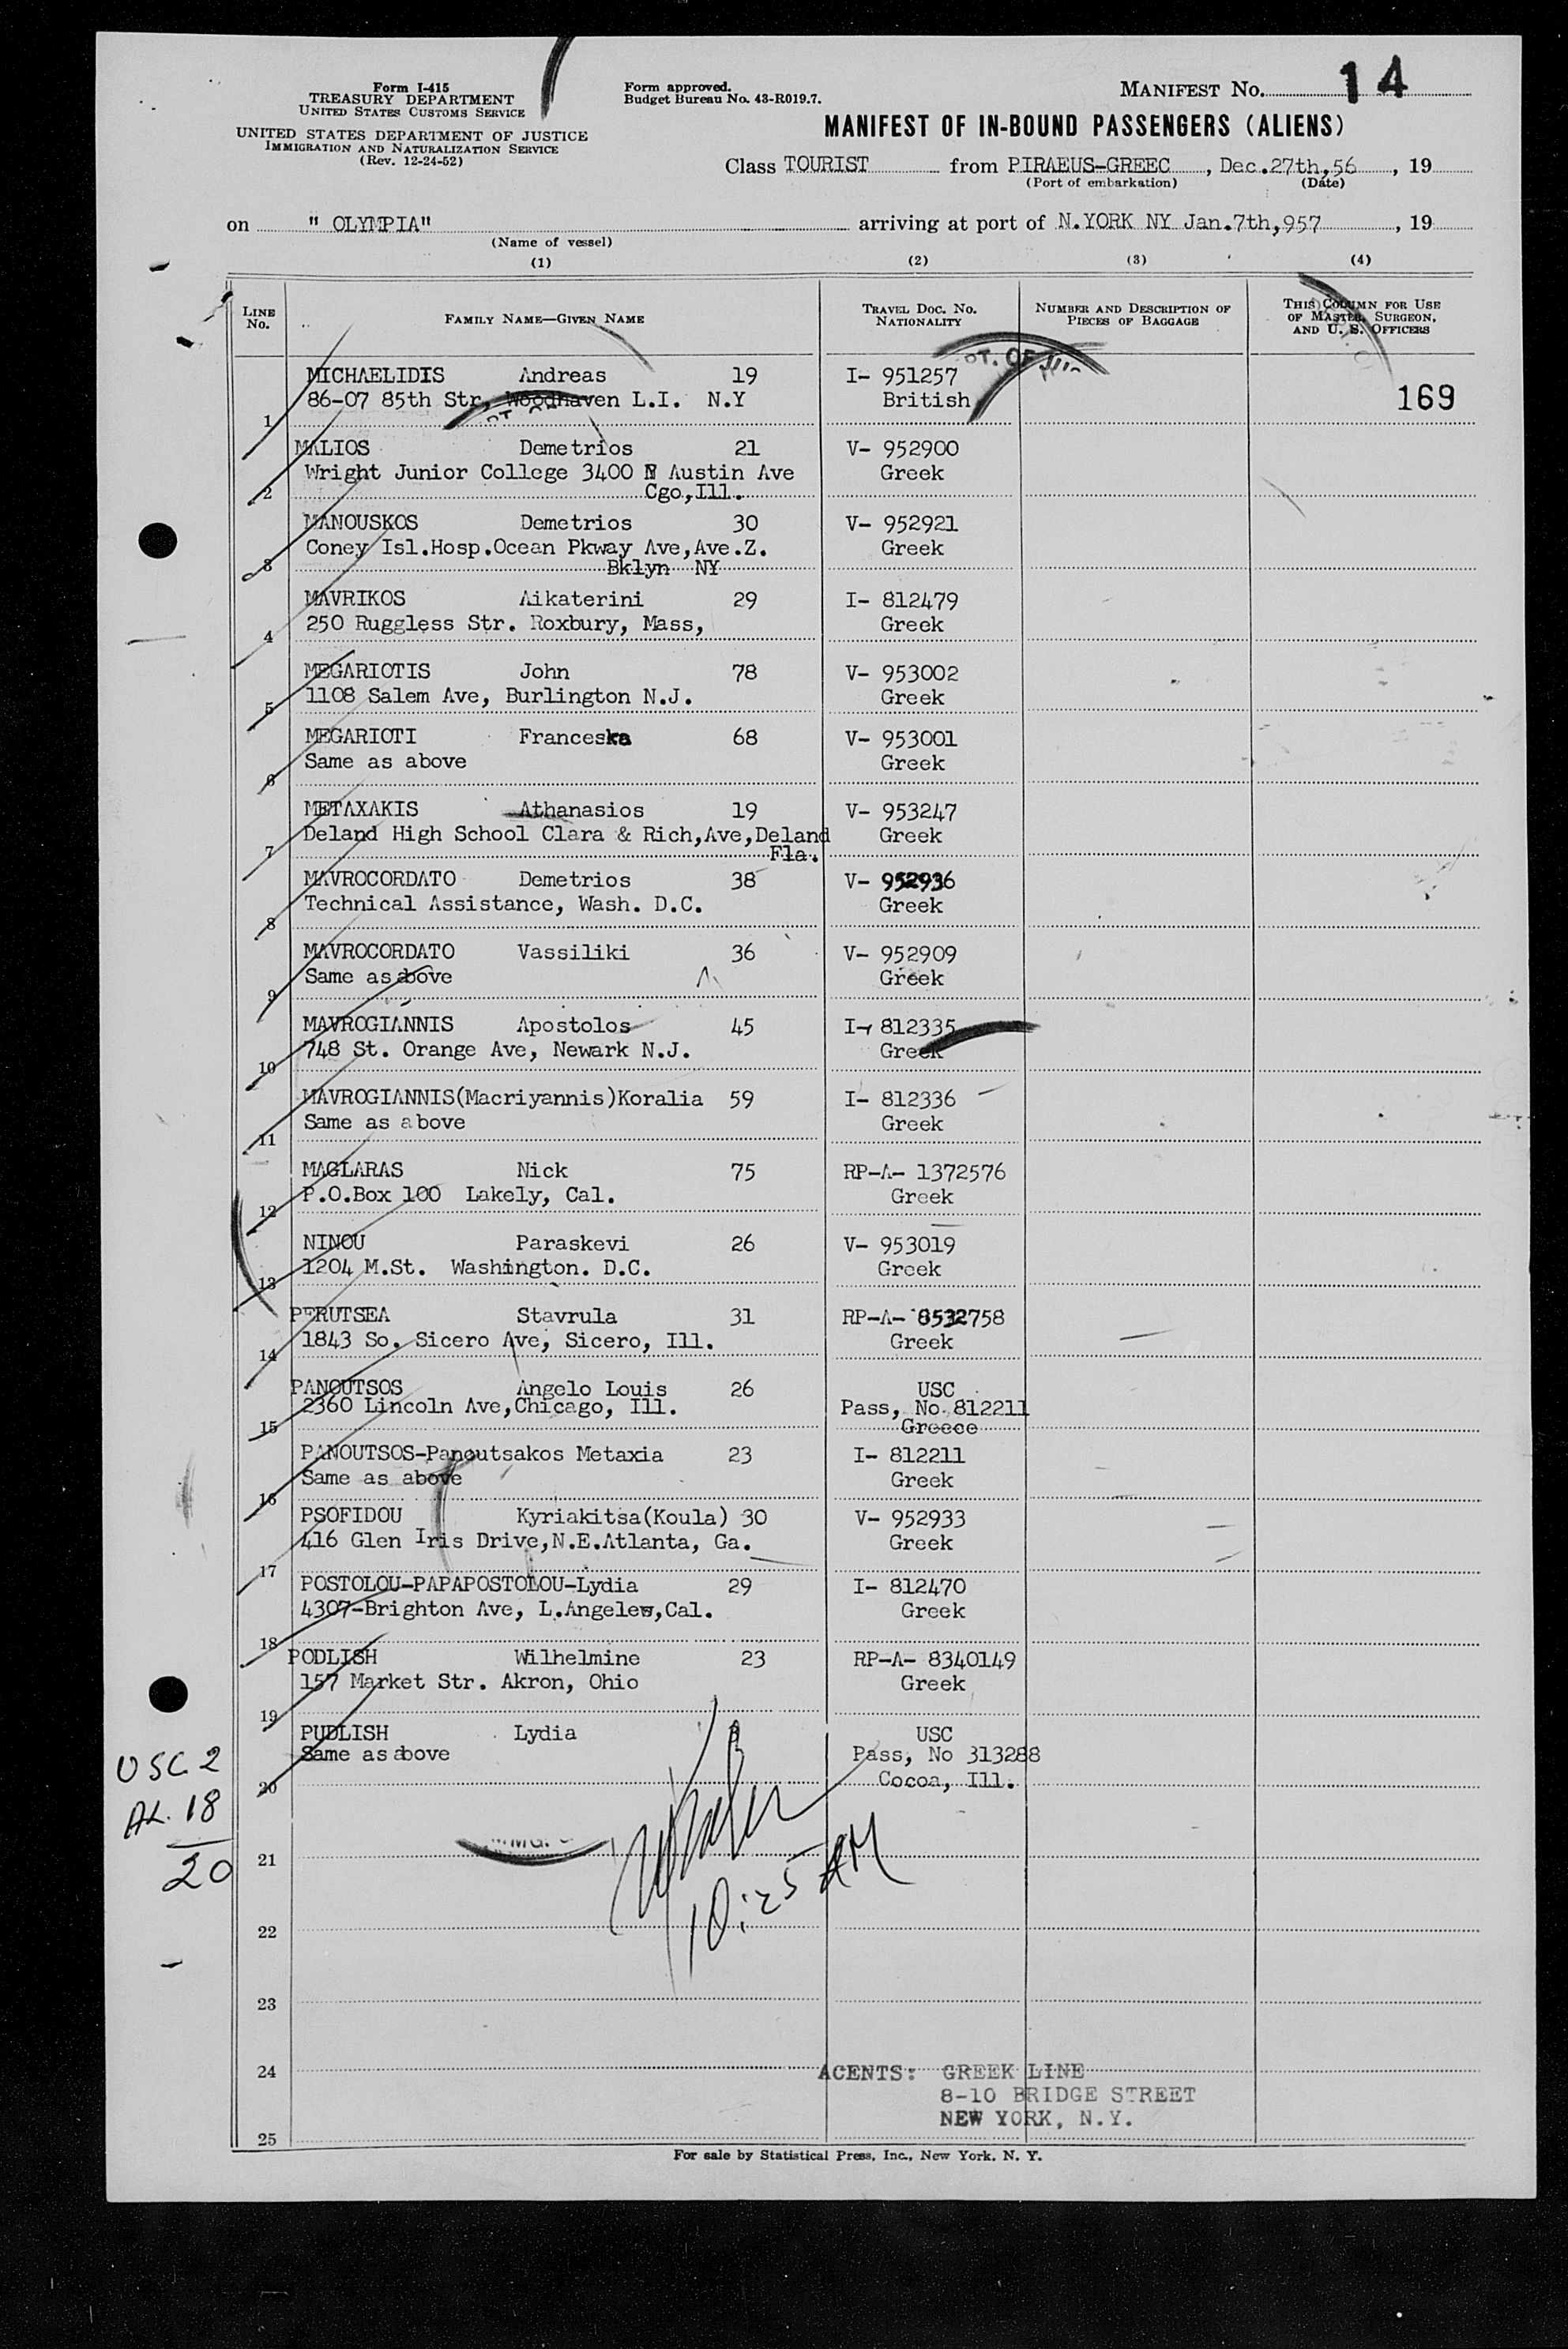 Form I-415
TREASURY DEPARTMENT
UNITED STATES CUSTOMS SERVICE
UNITED STATES DEPARTMENT OF JUSTICE
IMMIGRATION AND NATURALIZATION SERVICE
(Rev. 12-24-52)
Form approved.
Budget Bureau No. 43-R019.7.
MANIFEST No. 14
MANIFEST OF IN-BOUND PASSENGERS (ALIENS)
Class TOURIST from PIRAEUS-GREEC, Dec.27th,56, 19
(Port of embarkation) (Date)
on " OLYMPIA" arriving at port of N.YORK NY Jan.7th,957, 19
(Name of vessel)
(1) (2) (3) (4)
LINE No. FAMILY NAME—GIVEN NAME TRAVEL DOC. No. NATIONALITY NUMBER AND DESCRIPTION OF PIECES OF BAGGAGE THIS COLUMN FOR USE OF MASTER, SURGEON, AND U. S. OFFICERS
MICHAELIDIS Andreas 19 I- 951257
1 86-07 85th Str, Woodhaven L.I. N.Y British 169
MALIOS Demetrios 21 V- 952900
Wright Junior College 3400 N Austin Ave Greek
2 Cgo,Ill.
MANOUSKOS Demetrios 30 V- 952921
Coney Isl.Hosp.Ocean Pkway Ave,Ave.Z. Greek
3 Bklyn NY
MAVRIKOS Aikaterini 29 I- 812479
4 250 Ruggless Str. Roxbury, Mass, Greek
MEGARIOTIS John 78 V- 953002
5 1108 Salem Ave, Burlington N.J. Greek
MEGARIOTI Franceska 68 V- 953001
6 Same as above Greek
METAXAKIS Athanasios 19 V- 953247
Deland High School Clara & Rich,Ave,Deland Greek
7 Fla.
MAVROCORDATO Demetrios 38 V- 952936
8 Technical Assistance, Wash. D.C. Greek
MAVROCORDATO Vassiliki 36 V- 952909
9 Same as above Greek
MAVROGIANNIS Apostolos 45 I- 812335
10 748 St. Orange Ave, Newark N.J. Greek
MAVROGIANNIS(Macriyannis)Koralia 59 I- 812336
11 Same as above Greek
MAGLARAS Nick 75 RP-A- 1372576
12 P.O.Box 100 Lakely, Cal. Greek
NINOU Paraskevi 26 V- 953019
13 1204 M.St. Washington. D.C. Greek
PERUTSEA Stavrula 31 RP-A- 8532758
14 1843 So. Sicero Ave, Sicero, Ill. Greek
PANOUTSOS Angelo Louis 26 USC
2360 Lincoln Ave,Chicago, Ill. Pass, No 812211
15 Greece
PANOUTSOS-Panoutsakos Metaxia 23 I- 812211
16 Same as above Greek
PSOFIDOU Kyriakitsa(Koula) 30 V- 952933
17 416 Glen Iris Drive,N.E.Atlanta, Ga. Greek
POSTOLOU-PAPAPOSTOLOU-Lydia 29 I- 812470
18 4307-Brighton Ave, L.Angeles,Cal. Greek
PODLISH Wilhelmine 23 RP-A- 8340149
19 157 Market Str. Akron, Ohio Greek
PUDLISH Lydia USC
Same as above Pass, No 313288
20 Cocoa, Ill.
USC 2
AL. 18
20
10:25 AM
21
22
23
24 AGENTS: GREEK LINE
8-10 BRIDGE STREET
NEW YORK, N.Y.
25
For sale by Statistical Press, Inc., New York, N. Y.